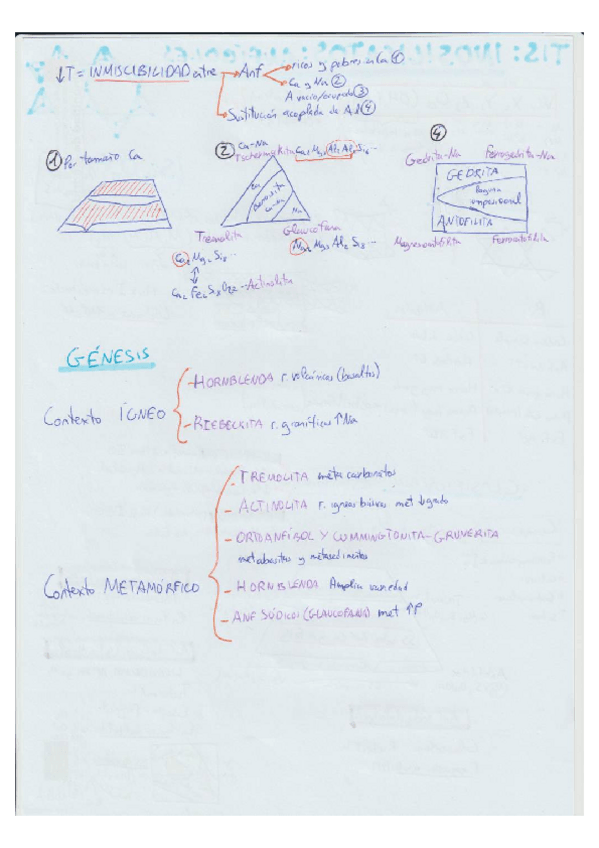 ↓T = INMISCIBILIDAD entre
Anf
ricos y pobres en Ca ①
Ca y Na ②
A vacío/ocupado ③
Sustitución acoplada de Al ④
① Por tamaño Ca
② Ca-Na
Tschermakita Ca₂ Mg₃ Al₂ Al₂ Si₆ --
Ca
Ca-Na
Na
Tremolita
Glaucofana
Ca₂ Mg₅ Si₈ --
Na₂ Mg₃ Al₂ Si₈ --
Ca₂ Fe₅ Si₈ O₂₂ -- Actinolita
④
Gedrita-Na
Ferrogedrita-Na
GEDRITA
laguna
composicional
ANTOFILITA
Magnesioantofilita
Ferroantofilita
GÉNESIS
Contexto ÍGNEO
- HORNBLENDA r. volcánicas (basaltos)
- RIEBECKITA r. graníticas ↑Na
Contexto METAMÓRFICO
- TREMOLITA meta carbonatos
- ACTINOLITA r. ígneas básicas met ↓grado
- ORTOANFÍBOL Y CUMMINGTONITA-GRUNERITA
metabasitas y metasedimentos
- HORNBLENDA Amplia variedad
- ANF SÓDICOS (GLAUCOFANA) met ↑P